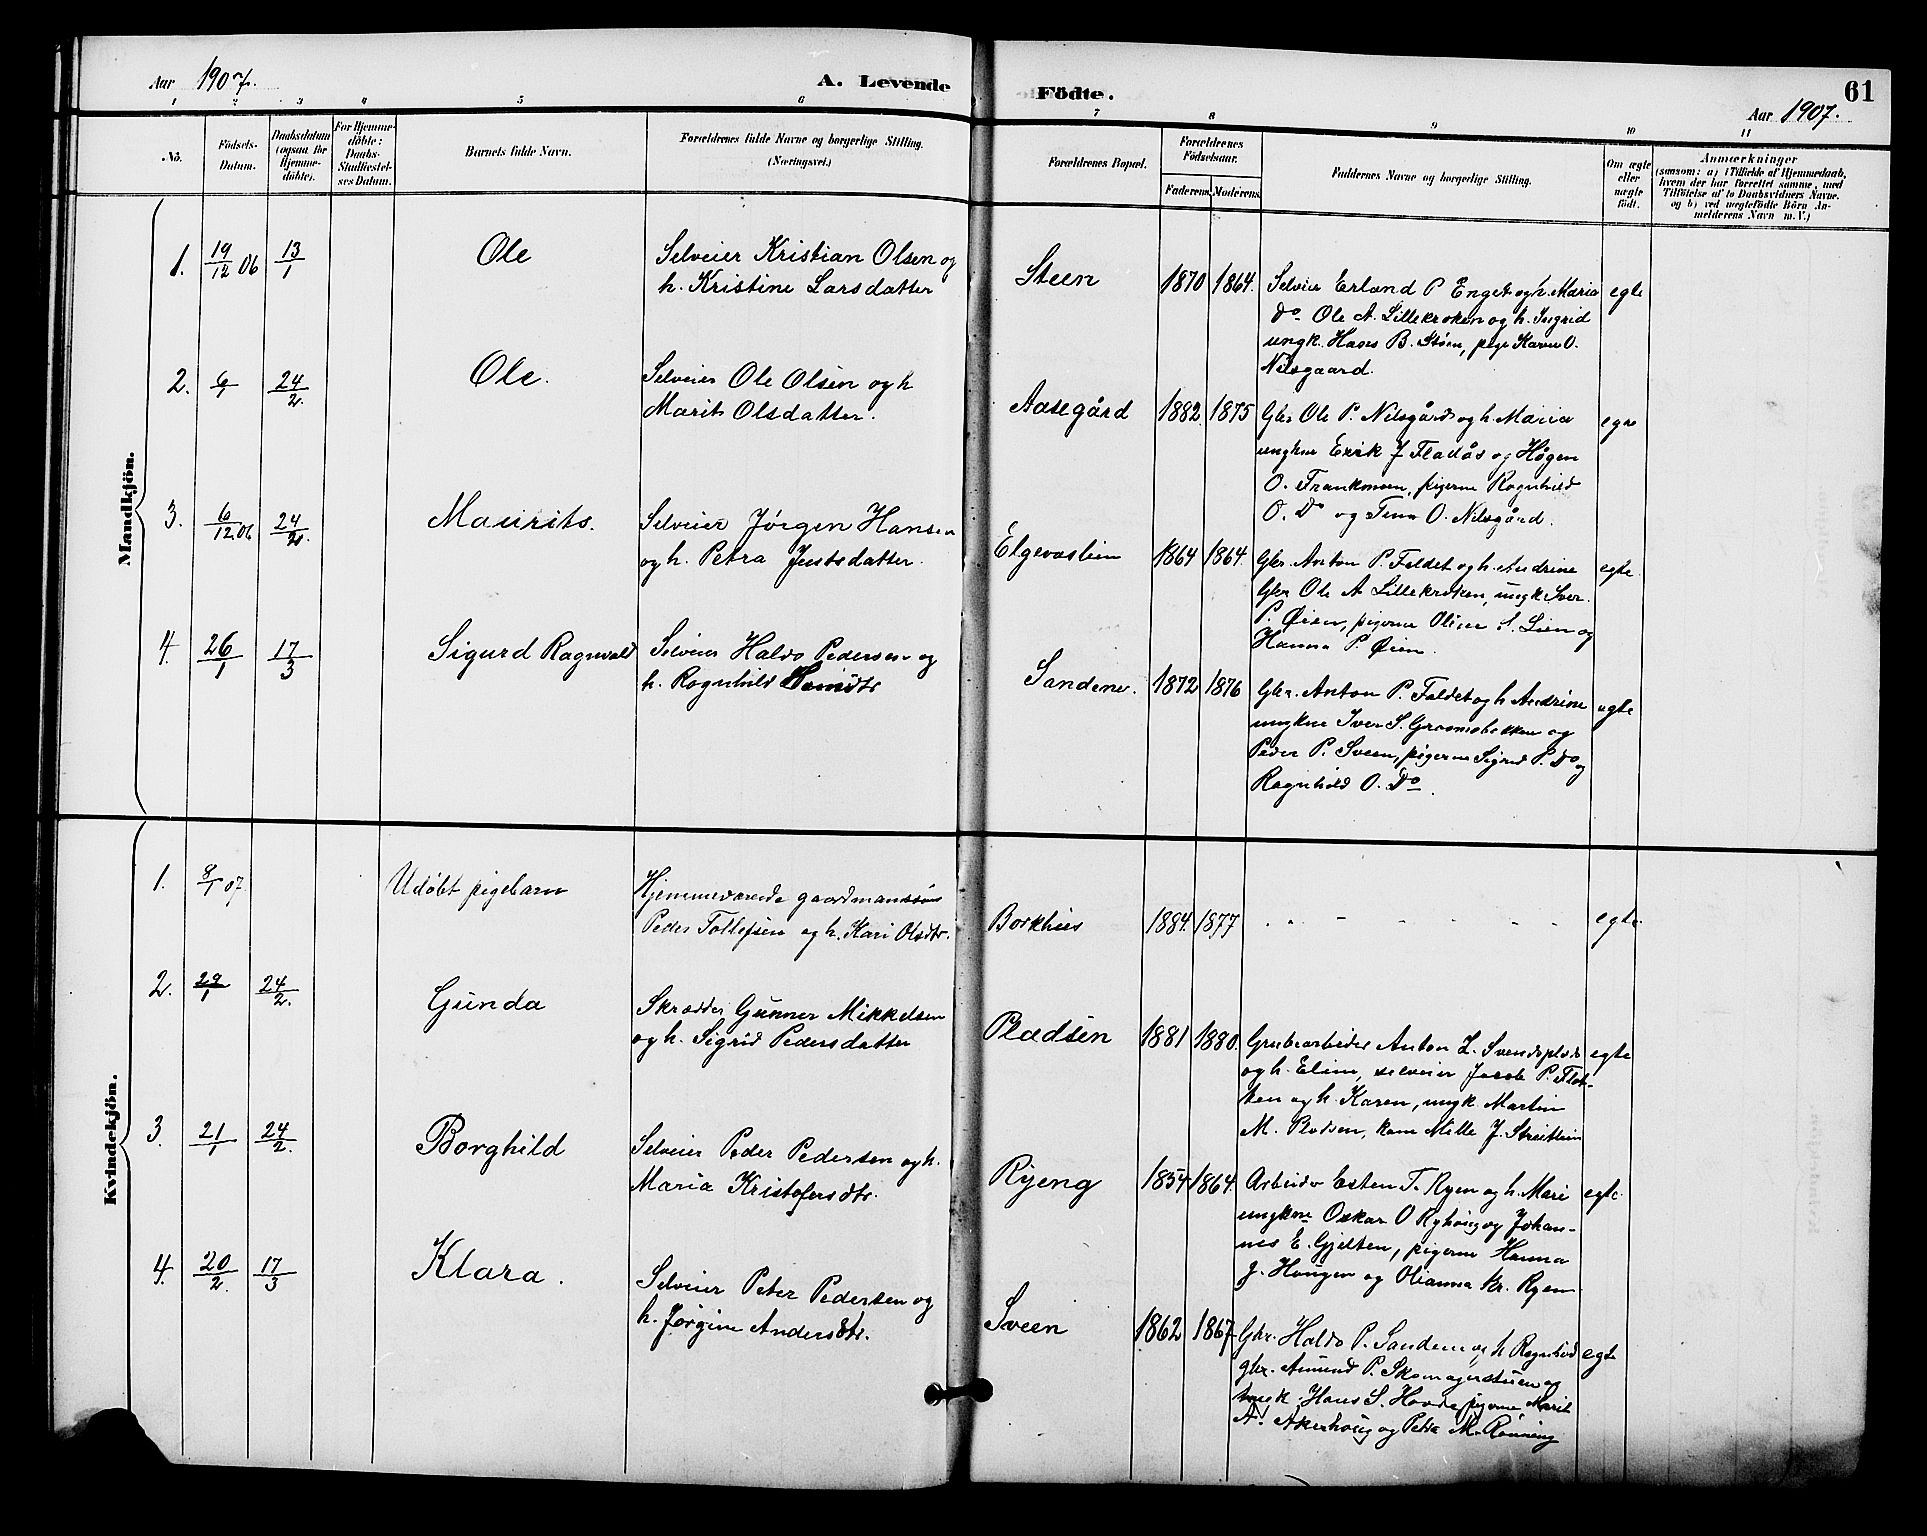 Aar 1907. A. Levende Födte. 61
Aar 1907.
1 2 3 4 5 6 7 8 9 10 11
No.
Födsels-
Datum.
Daabsdatum
(ogsaa for
Hjemme-
döbte).
For Hjemme-
döbte:
Daabs-
Stadfæstel-
ses Datum.
Barnets fulde Navn.
Forældrenes fulde Navne og borgerlige Stilling.
(Næringsvei.)
Forældrenes Bopæl.
Forældrenes
Födselsaar.
Faderens. Moderens.
Faddernes Navne og borgerlige Stilling.
Om ægte
eller
uægte
födt.
Anmærkninger
(saasom: a) i Tilfælde af Hjemmedaab,
hvem der har forrettet samme, med
Tilföielse af to Daabsvidners Navne.
og b) ved uegtefödte Börn An-
melderens Navn m. V.)
Mandkjön.
1. 19/12 06 13/1 Ole
Selveier Kristian Olsen og
h. Kristine Larsdatter
Steen 1870 1864.
Selveier Erland P Enget og h. Maria
Do Ole A. Lillekroken og h. Ingrid
ungk. Hans B. Støen, pige Karen O.
Nilsgaard.
egte
2. 6/1 24/2. Ole.
Selveier Ole Olsen og h
Marit Olsdatter.
Aasegård 1882 1875
Gbr Ole P. Nilsgård og h. Maria
ungkne Erik J Fladås og Høgen
O. Frankmoen, pigerne Ragnhild
O. Do og Tina O. Nilsgård.
egte
3. 6/12 06 24/2. Maurits.
Selveier Jørgen Hansen
og h. Petra Justsdatter.
Elgevaslien 1864 1864.
Gbr. Anton P. Foldet og h. Andrine
Gbr Ole A Lillekroken, ungk Iver
P. Øien, pigerne Oline S. Lien og
Hanna P. Øien.
egte.
4. 26/1 17/3 Sigurd Ragnvald
Selveier Haldo Pedersen og
h. Ragnhild
Sandene. 1872 1876
Gbr. Anton P. Foldet og h Andrine
ungkne Iver S. Graanesbekken og
Peder P. Sveen, pigerne Sigrid P. Do og
Ragnhild O. Do.
egte
Kvindekjön.
1. 8/1 07 Udöbt pigebarn
Hjemmeværende gaardmanssøn
Peder Tollefsen og h. Kari Olsdtr.
Borkhus 1884. 1877
egte.
2. 29/1 24/2. Gunda
Skrædder Gunner Mikkelsen
og h. Sigrid Pedersdatter
Pladsen 1881 1880.
Grubearbeider Anton L. Svendsplads
og h. Eline, selveier Jacob P. Flat-
ten og h. Karen, ungk. Martin
M. Pladsen, kone Mille J. Streitlien
egte
3. 21/1 24/2. Borghild
Selveier Peder Pedersen og h.
Maria Kristofersdtr.
Ryeng 1854 1864.
Arbeider Esten T. Ryen og h. Mari
ungkne Oskar O Ryhaug og Johan-
nes E. Gjelten, pigerne Hanna
J. Haugen og Olianna Kr. Ryen.
egte.
4. 20/2. 17/3 Klara.
Selveier Peter Pedersen og
h. Jørgine Andersdtr.
Sveen 1862 1867
Gbr. Haldo P. Sandene og h Ragnhild
gbr. Amund P. Skomagerstuen og
ungk. Hans S. Hovde pigerne Marit
A. Akerhaug og Petra M. Rønning
egte